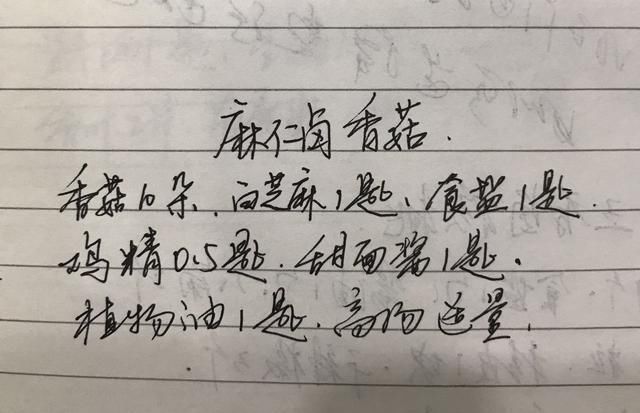 麻仁卤香菇.
香菇10朵、白芝麻1匙、食盐1匙.
鸡精0.5匙、甜面酱1匙、
植物油1匙、高汤适量.